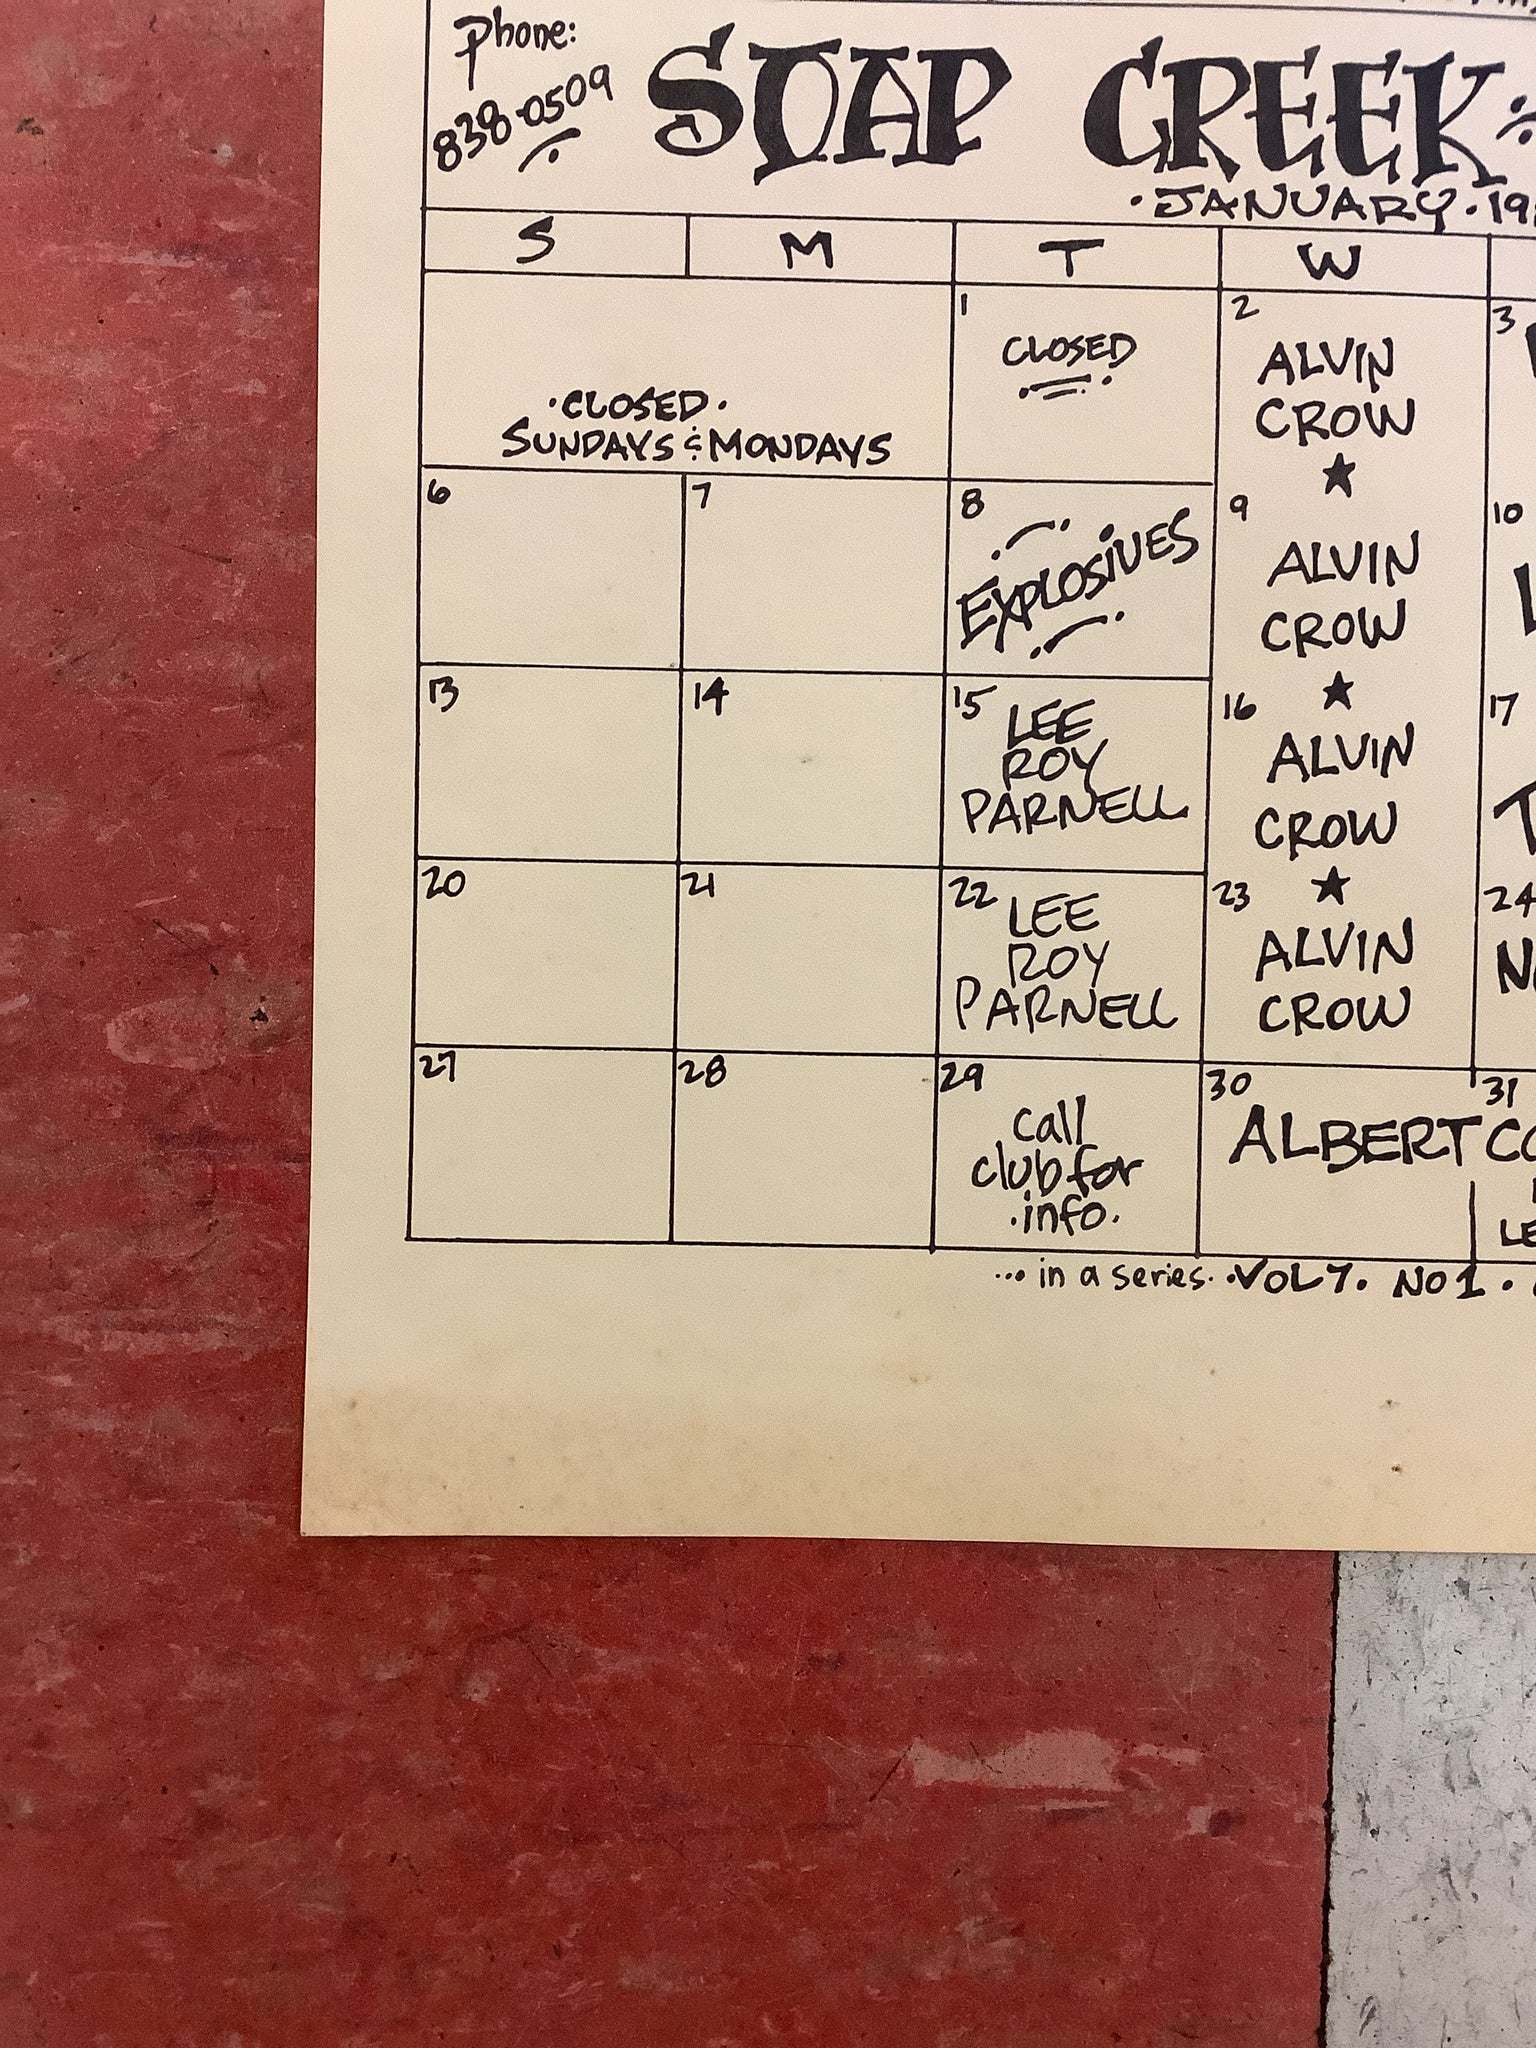 Phone:
838-0509
SOAP CREEK
·JANUARY·
S M T W
·CLOSED·
SUNDAYS & MONDAYS
1
CLOSED
2
ALVIN
CROW
3
6
7
8
EXPLOSIVES
9
ALVIN
CROW
10
13
14
15
LEE
ROY
PARNELL
16
ALVIN
CROW
17
20
21
22
LEE
ROY
PARNELL
23
ALVIN
CROW
24
27
28
29
call
club for
·info·
30
ALBERT
31
... in a series· ·VOL 7· NO 1·